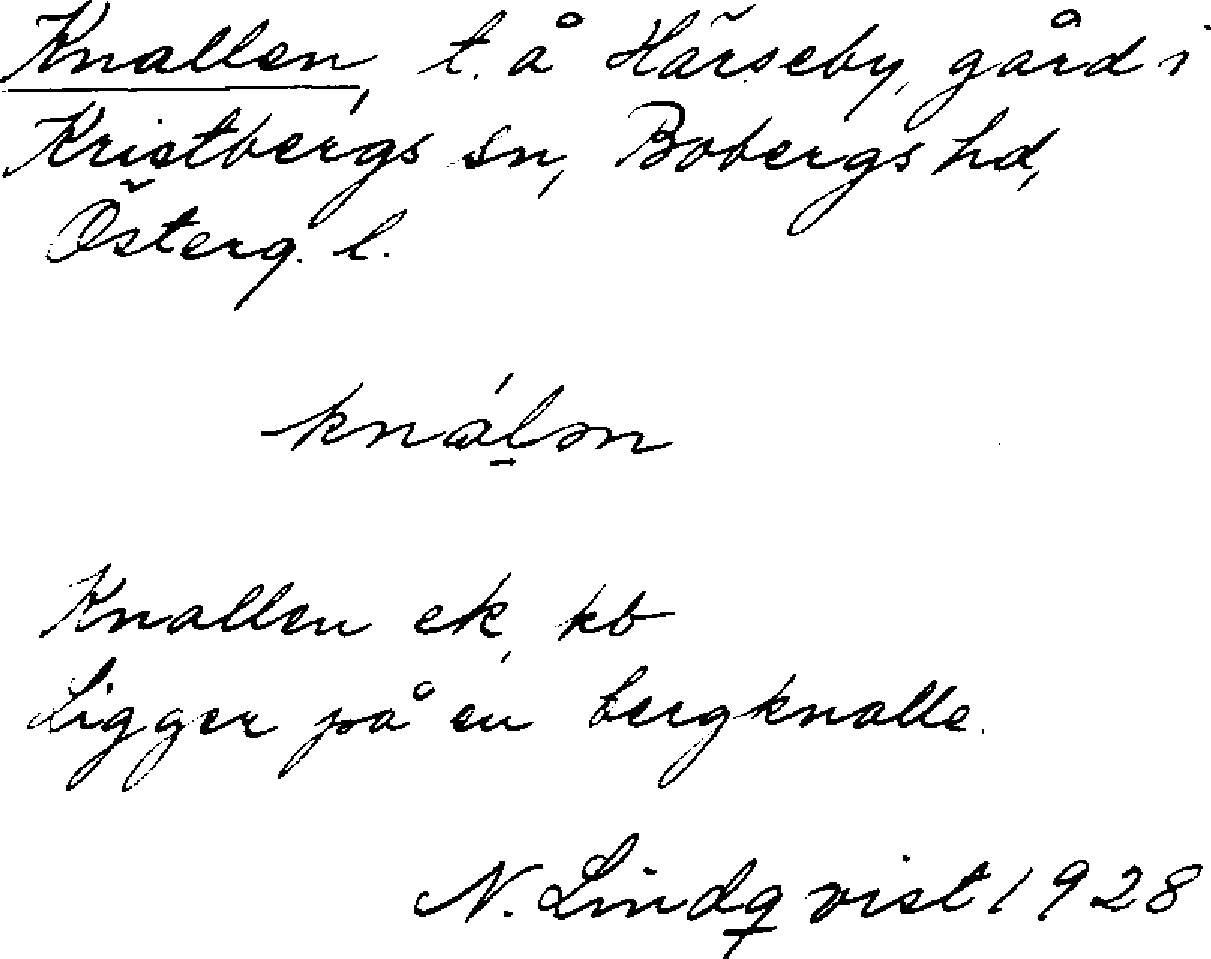 Knallen, t. å Härseby, gård i
Kristbergs sn, Bobergs hd,
Österg. l.
knáḷən
Knallen ek, kb
Ligger på en bergknalle.
N. Lindqvist 1928